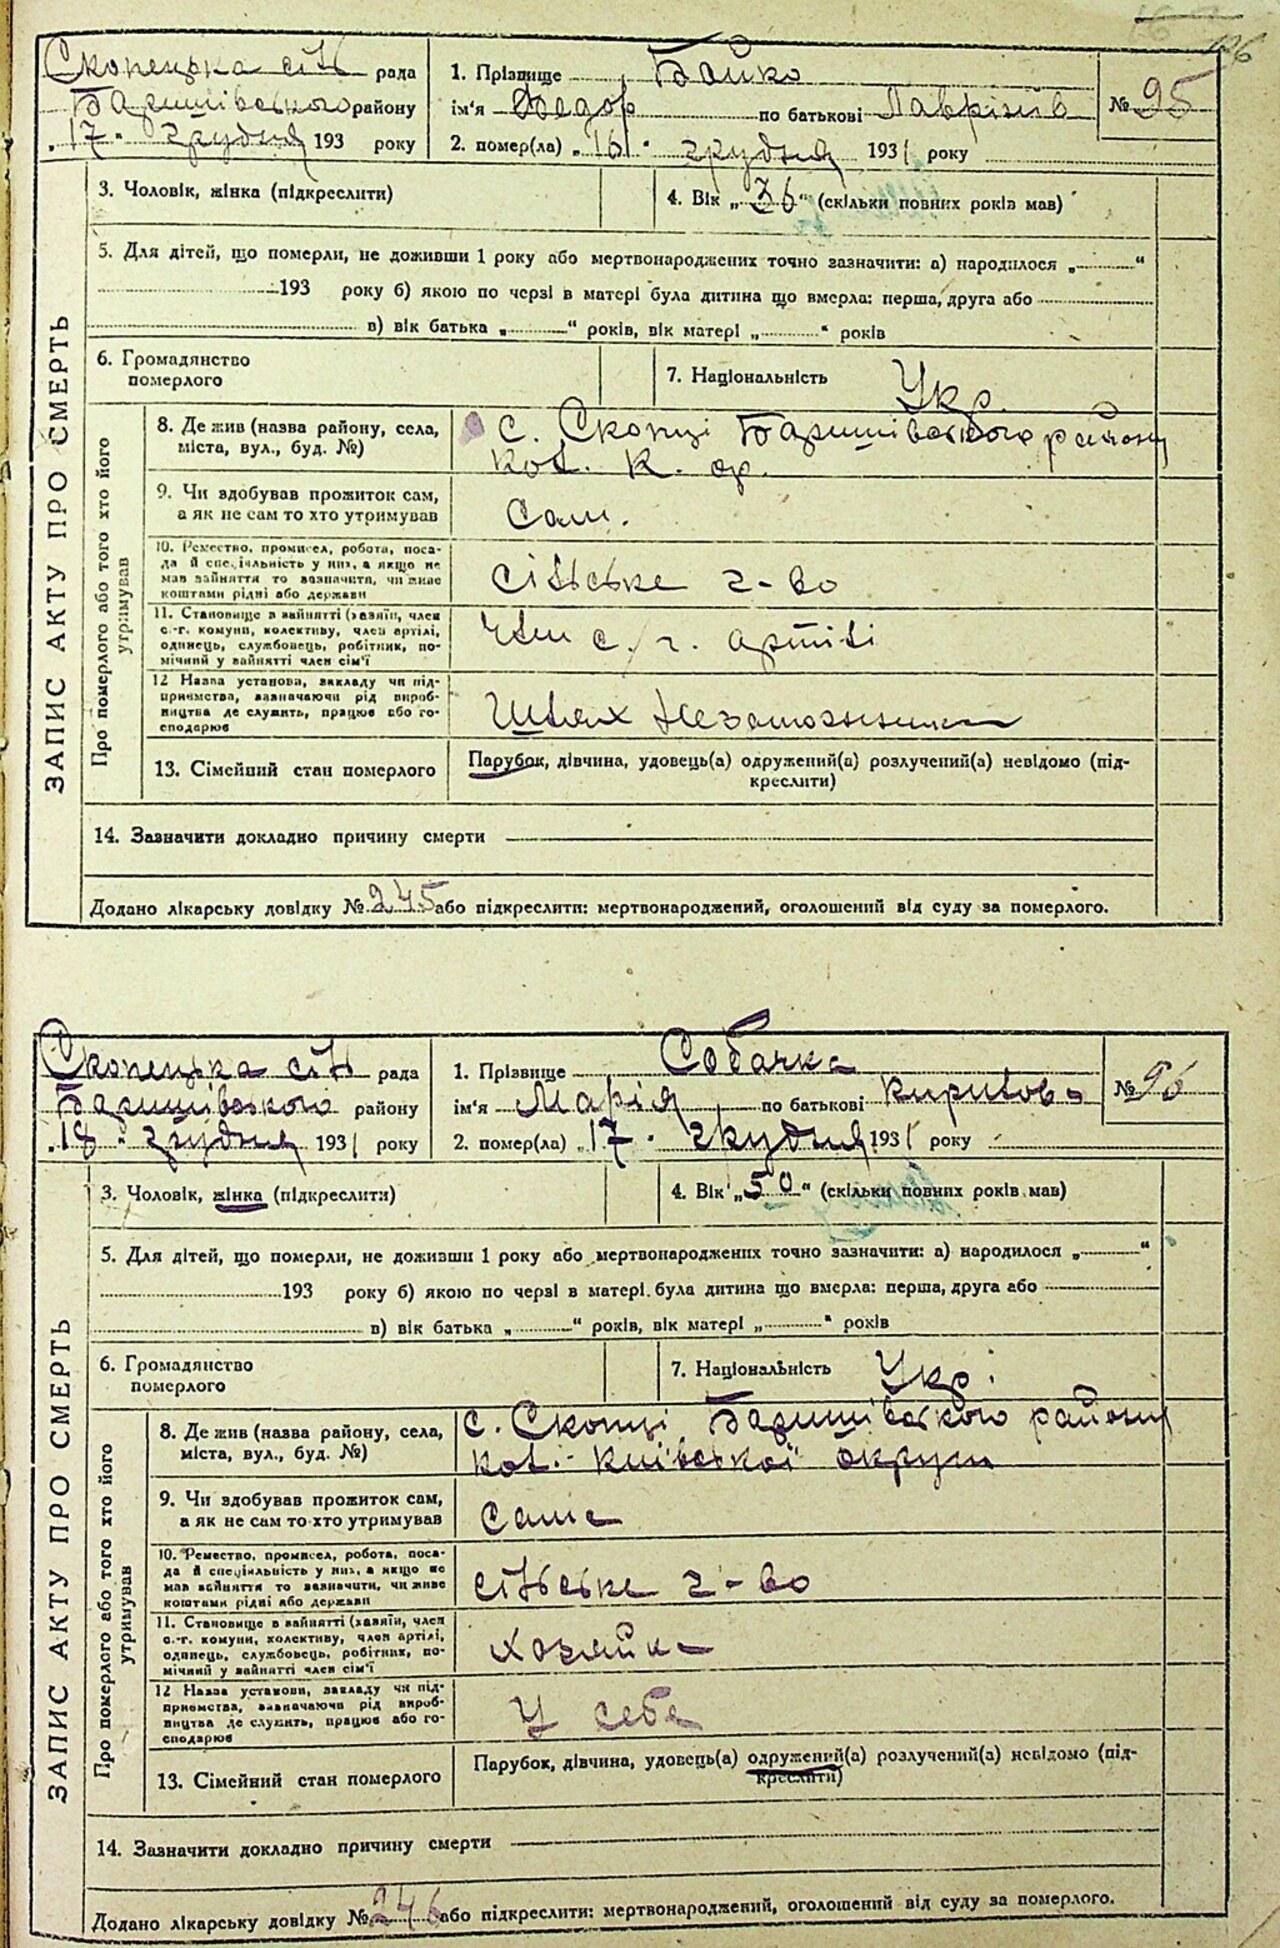 126
Скопецька сіль рада
Баришівського району
„17" грудня 193 року
1. Прізвище Бойко
ім'я Федор по батькові Лаврінів
2. помер(ла) „16" грудня 1931 року
№ 95
3. Чоловік, жінка (підкреслити)
4. Вік „36" (скільки повних років мав)
5. Для дітей, що померли, не доживши 1 року або мертвонароджених точно зазначити: а) народилося „ "
193 року б) якою по черзі в матері була дитина що вмерла: перша, друга або
в) вік батька „ " років, вік матері „ " років
6. Громадянство
померлого
7. Національність Укр.
ЗАПИС АКТУ ПРО СМЕРТЬ
Про померлого або того хто його
утримував
8. Де жив (назва району, села,
міста, вул., буд. №)
с. Скопці Баришівського району
кол. К. ор.
9. Чи здобував прожиток сам,
а як не сам то хто утримував
Сам.
10. Ремество, промисел, робота, поса-
да й спеціяльність у них, а якщо не
мав зайняття то зазначити, чи живе
коштами рідні або держави
сільське г-во
11. Становище в зайнятті (хазяїн, член
с.-г. комуни, колективу, член артілі,
одинець, службовець, робітник, по-
мічний у зайнятті член сім'ї
Член с/г. артілі
12 Назва установи, закладу чи під-
приємства, зазначаючи рід вироб-
ництва де служить, працює або го-
сподарює
Шлях Незаможника
13. Сімейний стан померлого
Парубок, дівчина, удовець(а) одружений(а) розлучений(а) невідомо (під-
креслити)
14. Зазначити докладно причину смерти
Додано лікарську довідку № 245 або підкреслити: мертвонароджений, оголошений від суду за померлого.
Скопецька сіль рада
Баришівського району
„18" грудня 1931 року
1. Прізвище Собачка
ім'я Марія по батькові Кирилова
2. помер(ла) „17" грудня 1931 року
№ 96
3. Чоловік, жінка (підкреслити)
4. Вік „50" (скільки повних років мав)
5. Для дітей, що померли, не доживши 1 року або мертвонароджених точно зазначити: а) народилося „ "
193 року б) якою по черзі в матері була дитина що вмерла: перша, друга або
в) вік батька „ " років, вік матері „ " років
6. Громадянство
померлого
7. Національність Укр.
ЗАПИС АКТУ ПРО СМЕРТЬ
Про померлого або того хто його
утримував
8. Де жив (назва району, села,
міста, вул., буд. №)
с. Скопці Баришівського району
кол. Київської округи
9. Чи здобував прожиток сам,
а як не сам то хто утримував
Сама
10. Ремество, промисел, робота, поса-
да й спеціяльність у них, а якщо не
мав зайняття то зазначити, чи живе
коштами рідні або держави
сільське г-во
11. Становище в зайнятті (хазяїн, член
с.-г. комуни, колективу, член артілі,
одинець, службовець, робітник, по-
мічний у зайнятті член сім'ї
хозяйка
12 Назва установи, закладу чи під-
приємства, зазначаючи рід вироб-
ництва де служить, працює або го-
сподарює
У себе
13. Сімейний стан померлого
Парубок, дівчина, удовець(а) одружений(а) розлучений(а) невідомо (під-
креслити)
14. Зазначити докладно причину смерти
Додано лікарську довідку № 246 або підкреслити: мертвонароджений, оголошений від суду за померлого.